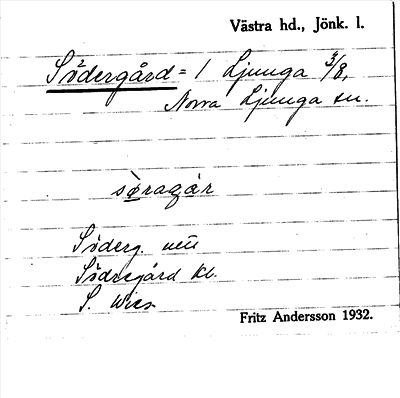 Västra hd., Jönk. l.
Södergård = 1 Ljunga 3/8,
Norra Ljunga sn.
sǿragår
Söderg. 
Södregård kl.
S.
Fritz Andersson 1932.